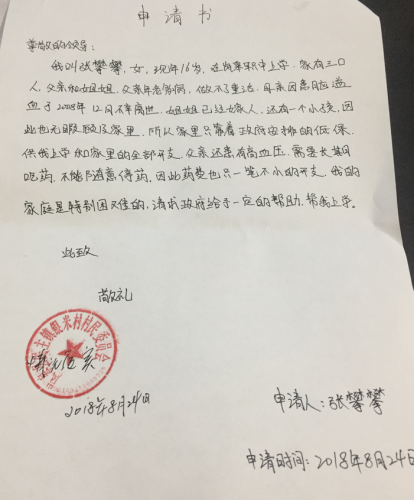 申请书
尊敬的领导:
我叫张攀攀,女,现年16岁,在职中上学.家有三口
人,父亲和姐姐,父亲年老多病,做不了重活.母亲因患脑溢
血于2008年12月不幸离世.姐姐已经嫁人,还有一个小孩,因
此也无暇顾及家里,所以家里只靠着政府安排的低保,
供我上学和家里的全部开支.父亲还患有高血压.需要长期
吃药,不能随意停药.因此药费也只一笔不小的开支.我的
家庭是特别困难的,请求政府给予一定的帮助,帮我上学.
此致
敬礼
主镇银米村村民委员会
情况属实
2018年8月24日
申请人:张攀攀
申请时间:2018年8月24日